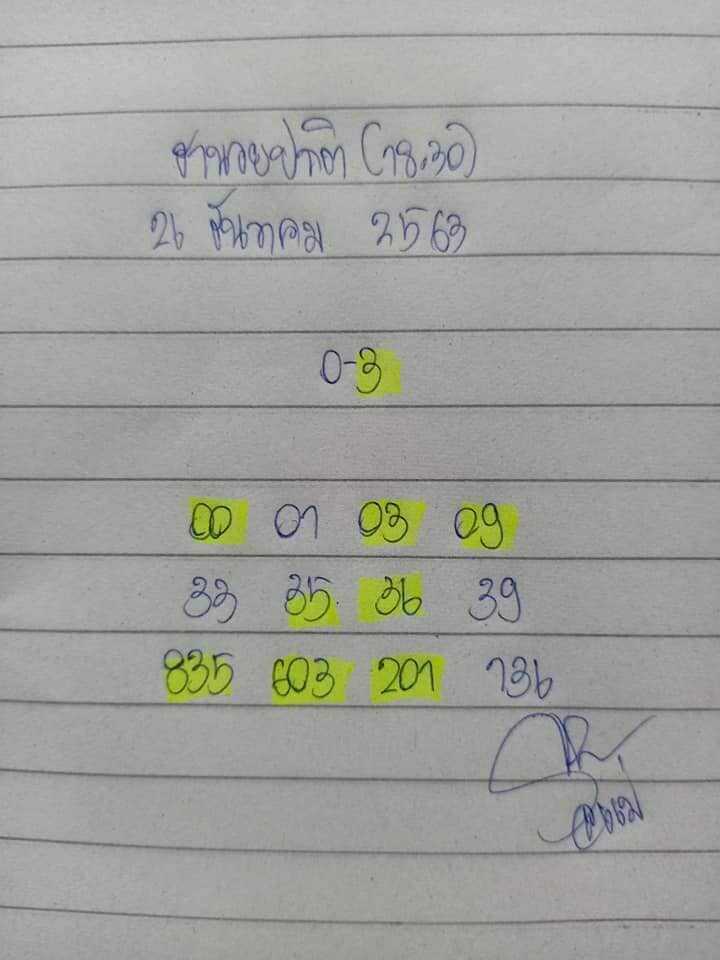 ฮานอยปกติ (18.30)
26 ธันวาคม 2563
0-3
00 01 03 09
33 35 36 39
835 603 201 136